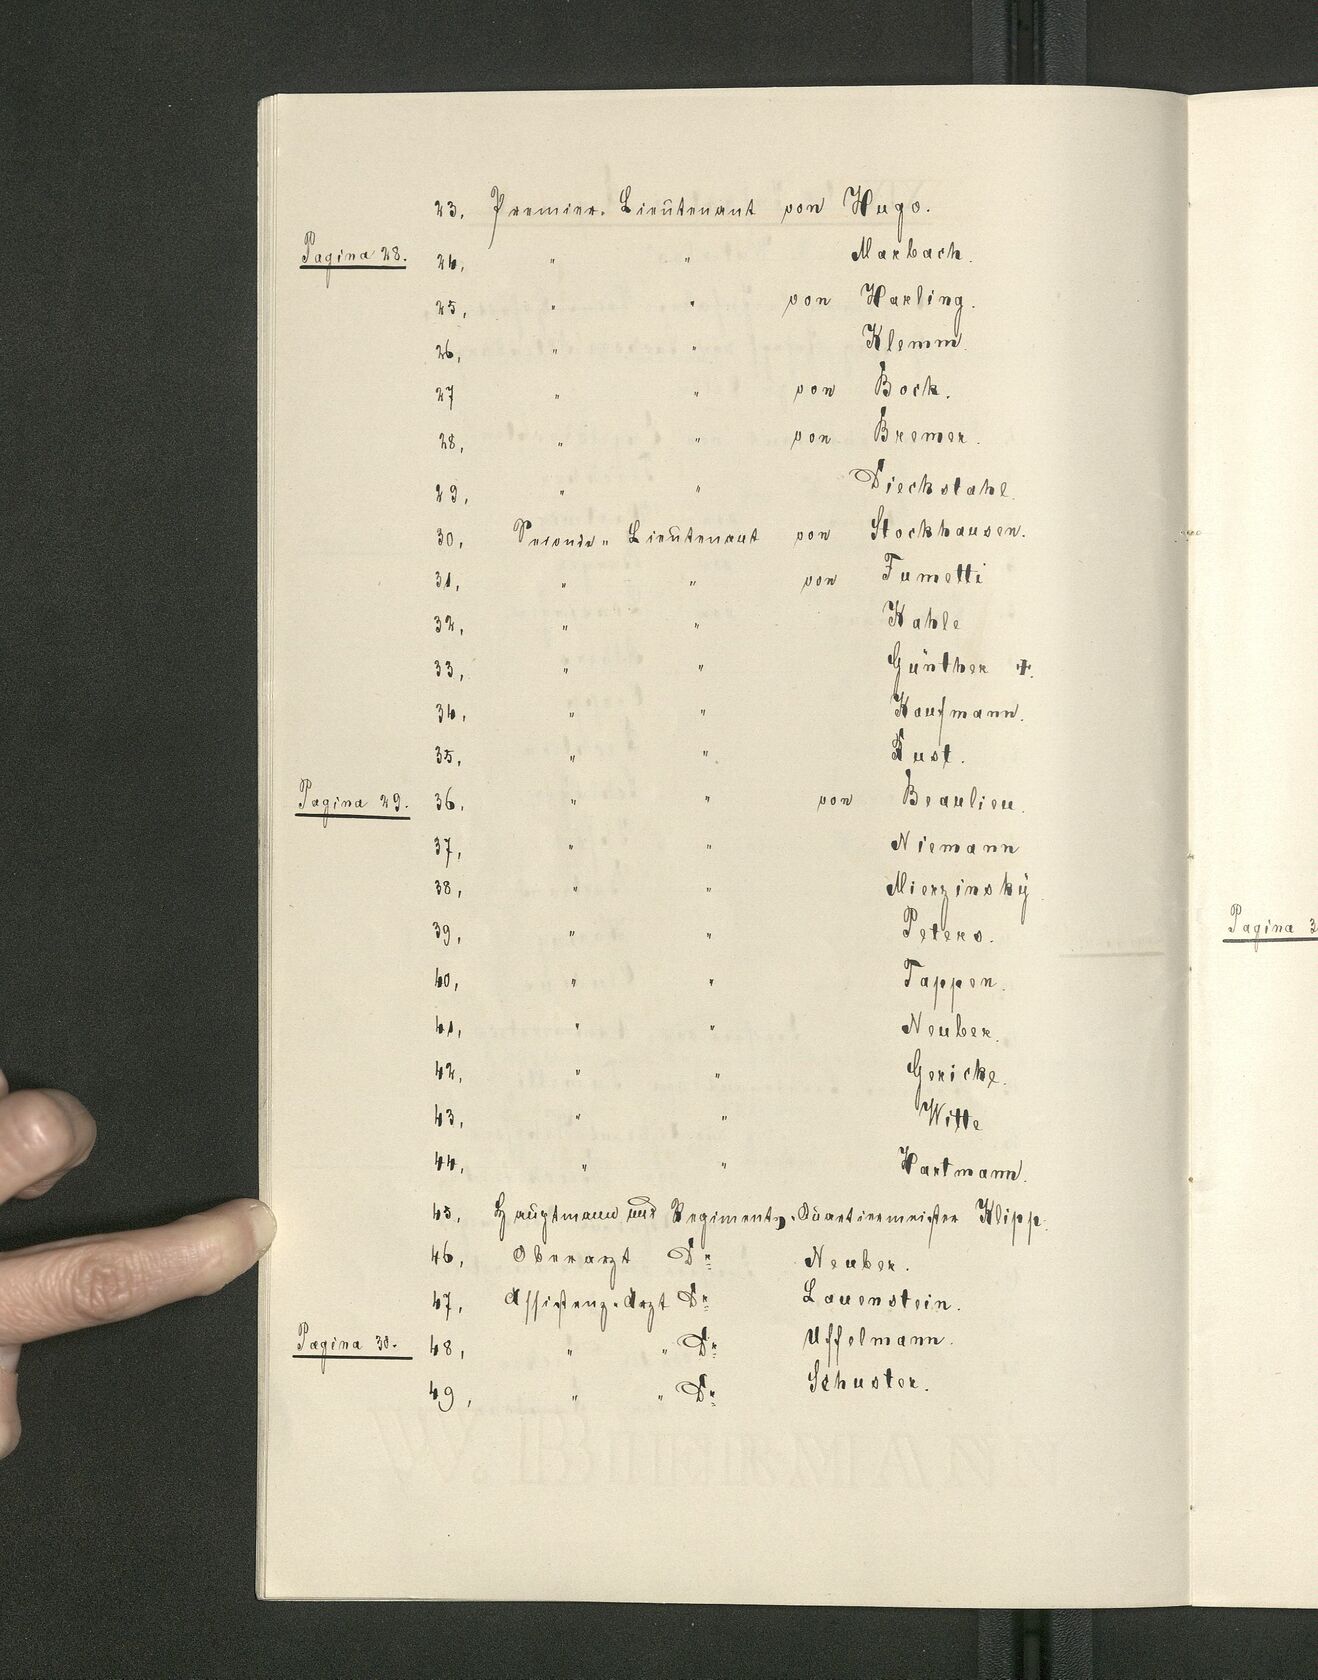 23, Premier-Lieutenant von Hugo.
Pagina 28. 24, " " Marbach.
25, " " von Harling.
26, " " Klemm.
27 " " von Bock.
28, " " von Bremer.
29, " " Dieckstahl.
30, Seconde-Lieutenant von Stockhausen.
31, " " von Fumetti
32, " " Kahle
33, " " Günther +.
34, " " Kaufmann.
35, " " Lust.
Pagina 29. 36, " " von Beaulieu.
37, " " Niemann
38, " " Mierzinskÿ
39, " " Peters.
40, " " Tappen.
41, " " Neuber.
42, " " Gericke.
43, " " Witte
44, " " Hartmann.
45, Hauptmann und Regiments-Quartiermeister Klipp.
46, Oberarzt Dr Neuber.
47, Assistenz-Arzt Dr Lauenstein.
Pagina 30. 48, " " Dr Uffelmann.
49, " " Dr Schuster.
Pagina